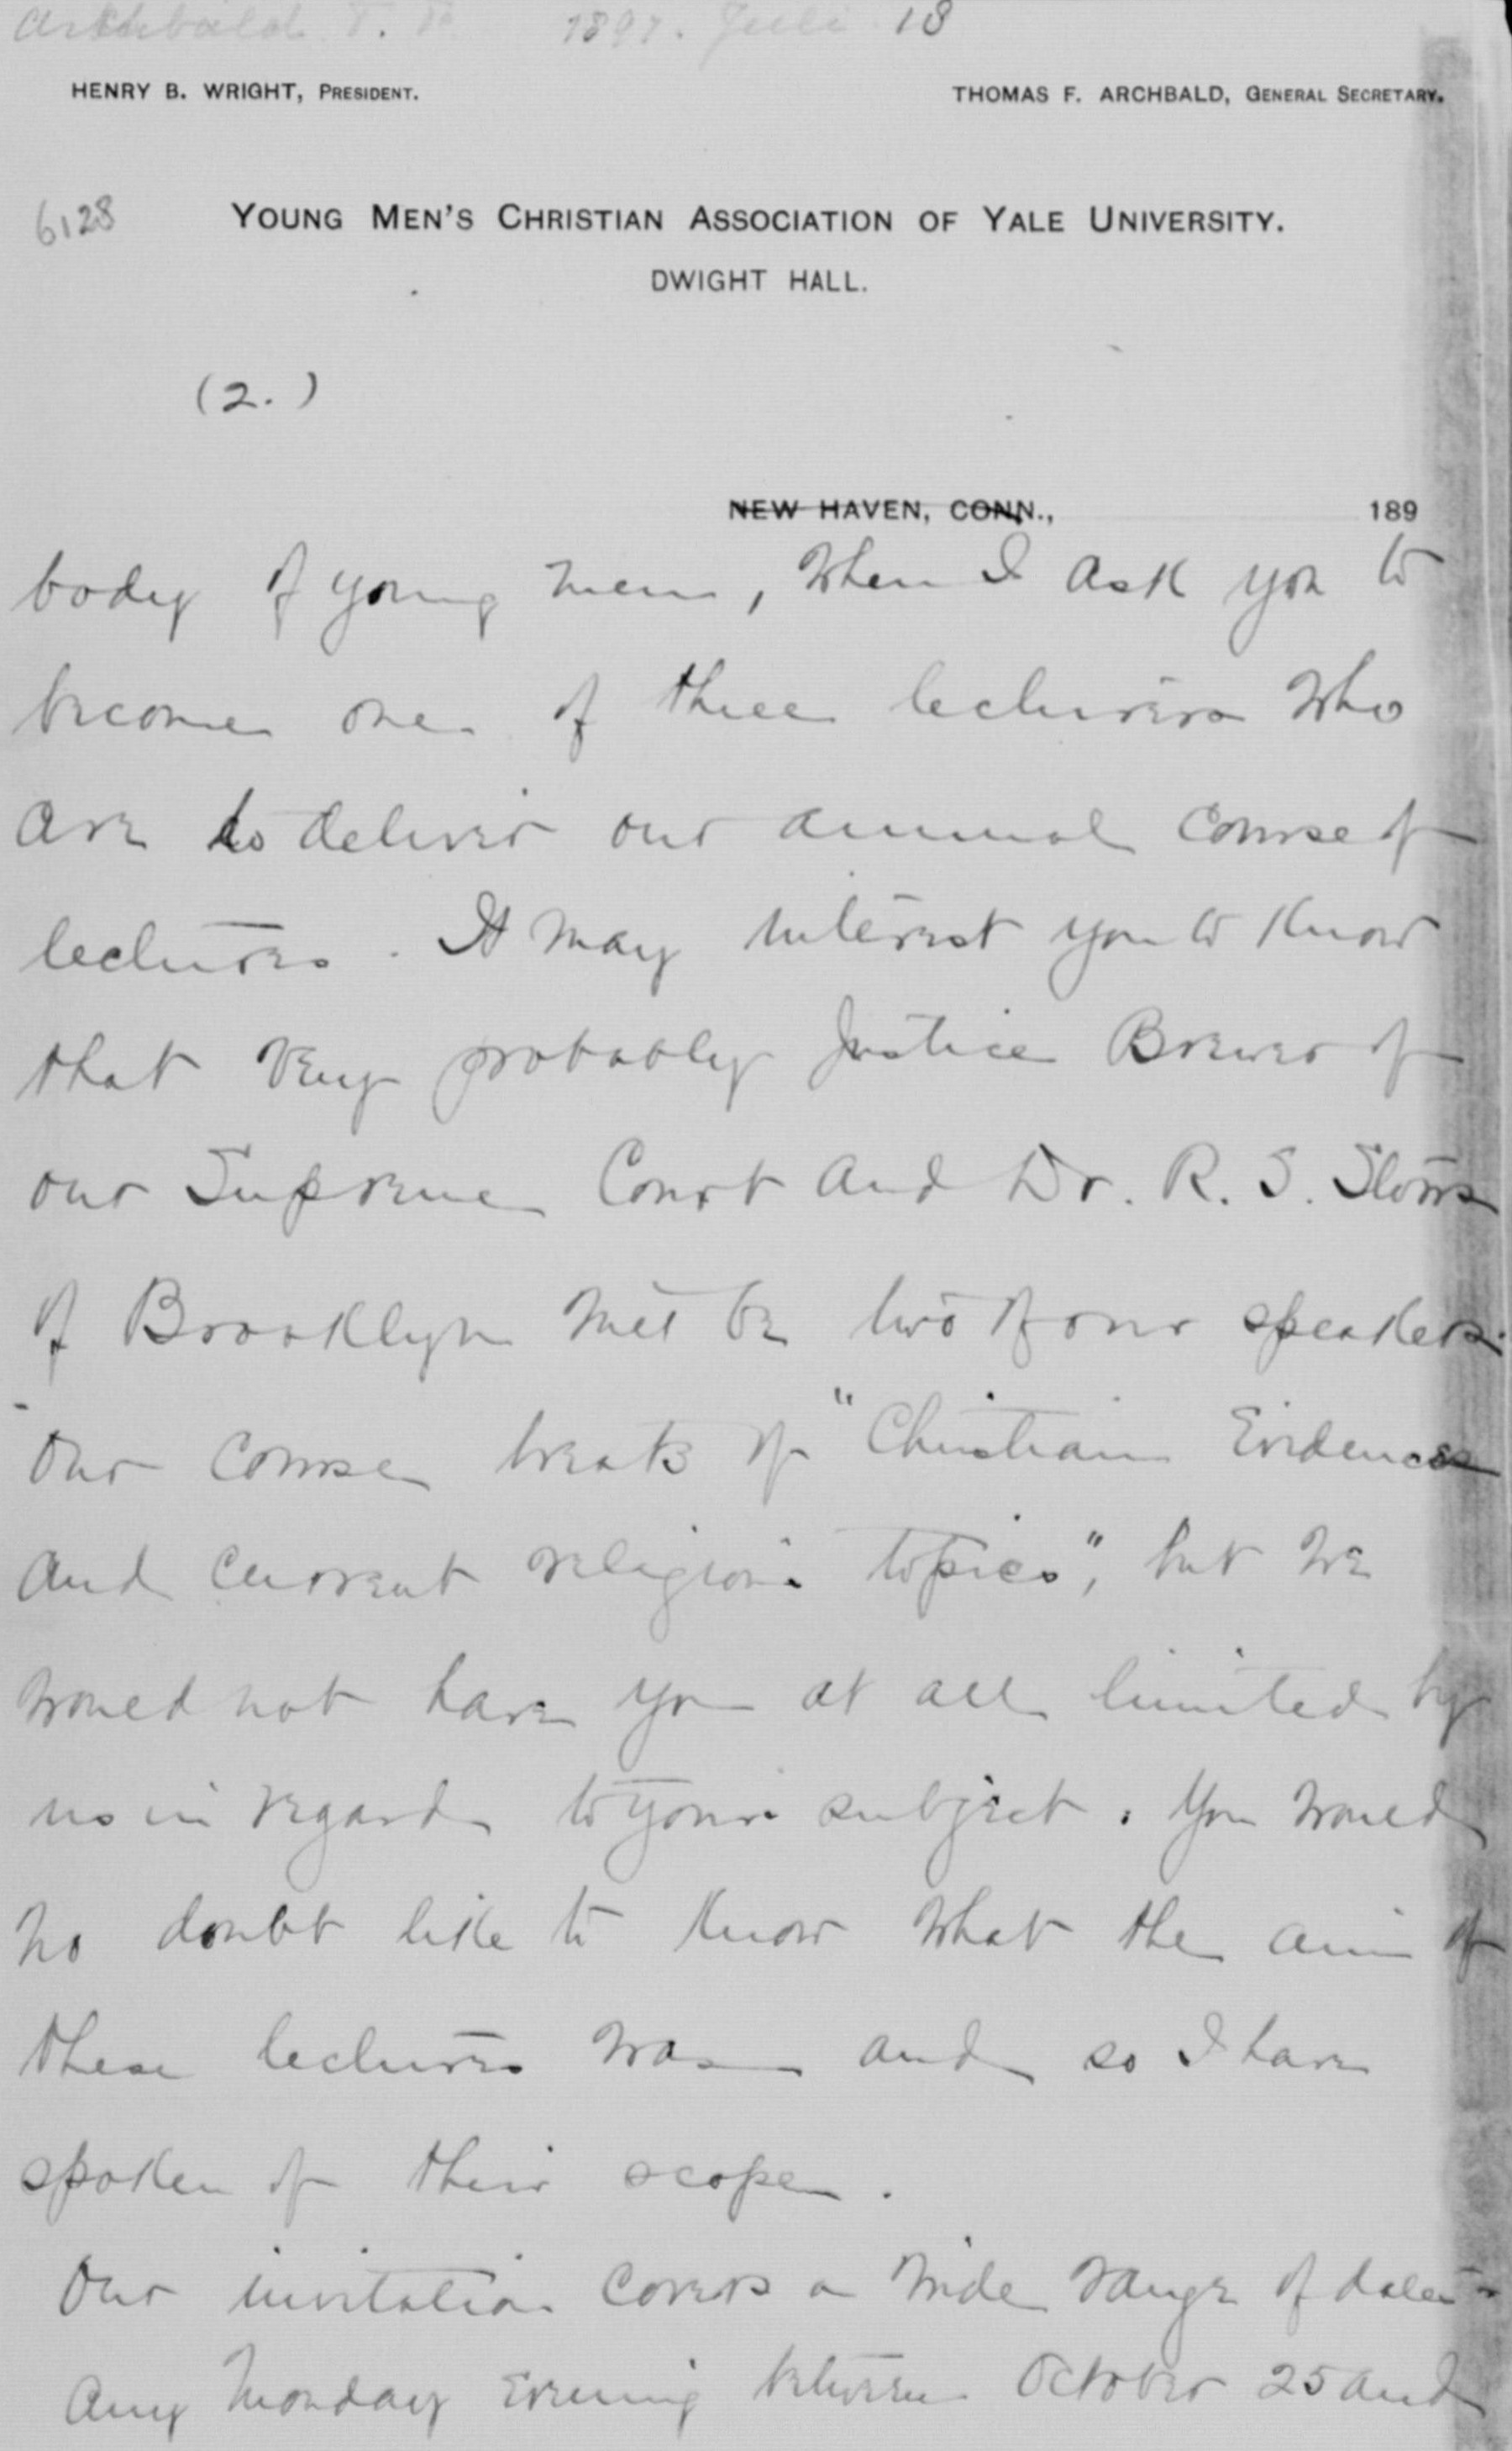 Archbald T. F. 1897. Juli 18
HENRY B. WRIGHT, PRESIDENT. THOMAS F. ARCHBALD, GENERAL SECRETARY.
6128 YOUNG MEN'S CHRISTIAN ASSOCIATION OF YALE UNIVERSITY.
DWIGHT HALL.
(2.)
NEW HAVEN, CONN., 189
body of young men, when I ask you to
become one of three lecturers who
are to deliver our annual course of
lectures. It may interest you to know
that very probably Justice Brewer of
our Supreme Court and Dr. R. S. Storrs
of Brooklyn will be two of our speakers.
Our course treats of "Christian Evidences
and current religious topics", but we
would not have you at all limited by
us in regard to your subject. You would
no doubt like to know what the aim of
these lectures was and so I have
spoken of their scope.
Our invitation covers a wide range of dates -
any Monday evening between October 25 and